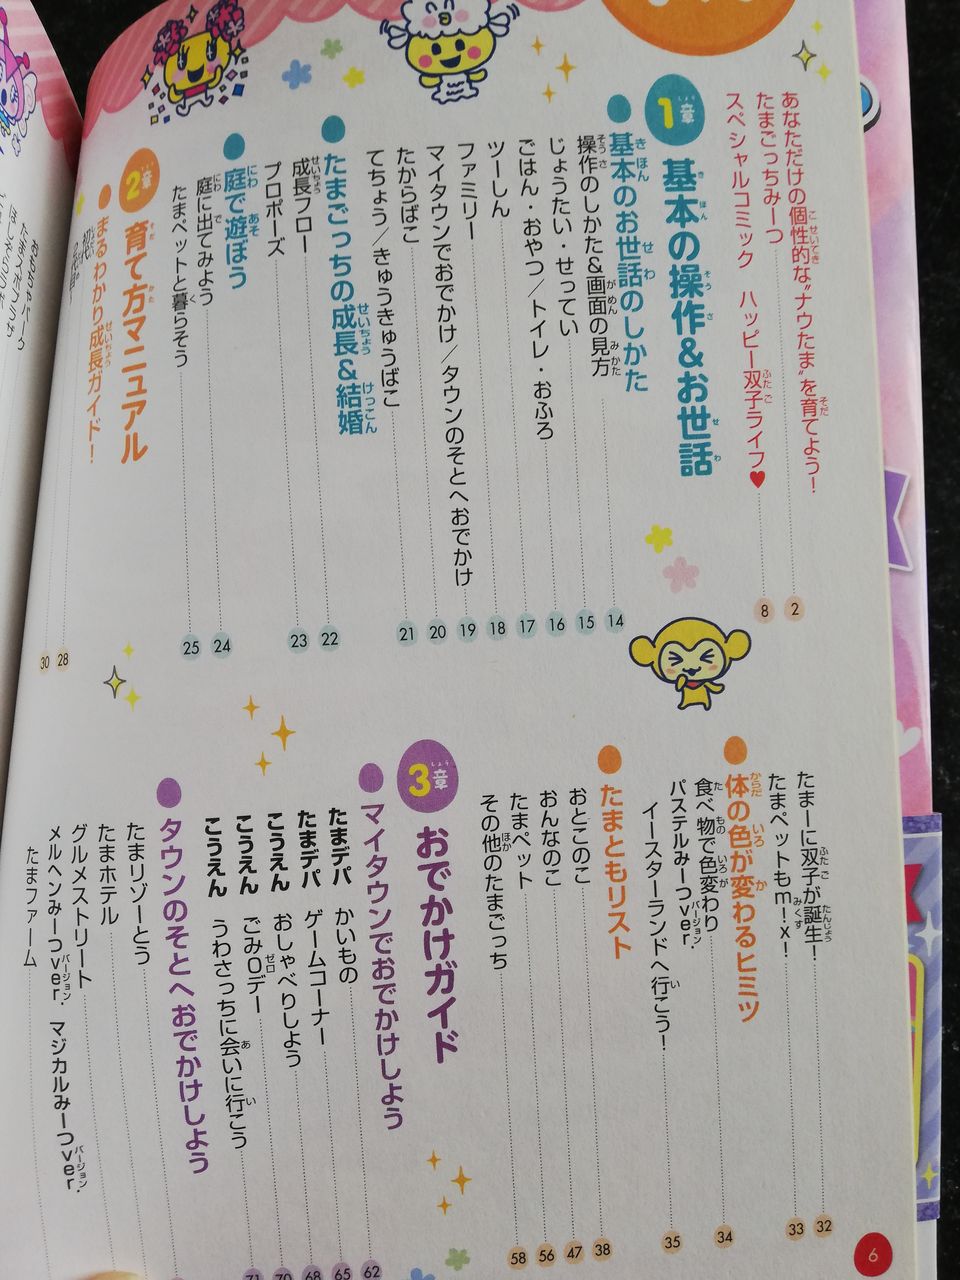 あなただけの個性的な“ナウたま”を育てよう！ 2
たまごっちみーつ
スペシャルコミック　ハッピー双子ライフ♥ 8
1章 基本の操作&お世話
基本のお世話のしかた 14
操作のしかた&画面の見方 15
じょうたい・せってい 16
ごはん・おやつ／トイレ・おふろ 17
ツーしん 18
ファミリー 19
マイタウンでおでかけ／タウンのそとへおでかけ 20
たからばこ 21
てちょう／きゅうきゅうばこ
たまごっちの成長&結婚 22
成長フロー 23
プロポーズ
庭で遊ぼう 24
庭に出てみよう 25
たまペットと暮らそう
2章 育て方マニュアル
まるわかり成長ガイド！ 28
30
たまーに双子が誕生！ 32
たまペットもm!x！ 33
体の色が変わるヒミツ
食べ物で色変わり 34
パステルみーつver. 35
イースターランドへ行こう！
たまともリスト 38
おとこのこ 47
おんなのこ 56
たまペット 58
その他のたまごっち
3章 おでかけガイド
マイタウンでおでかけしよう 62
たまデパ　かいもの 65
たまデパ　ゲームコーナー 68
こうえん　おしゃべりしよう 70
こうえん　ごみ0デー 71
こうえん　うわさっちに会いに行こう
タウンのそとへおでかけしよう
たまリゾーとう
たまホテル
グルメストリート
メルヘンみーつver.　マジカルみーつver.
たまファーム
6